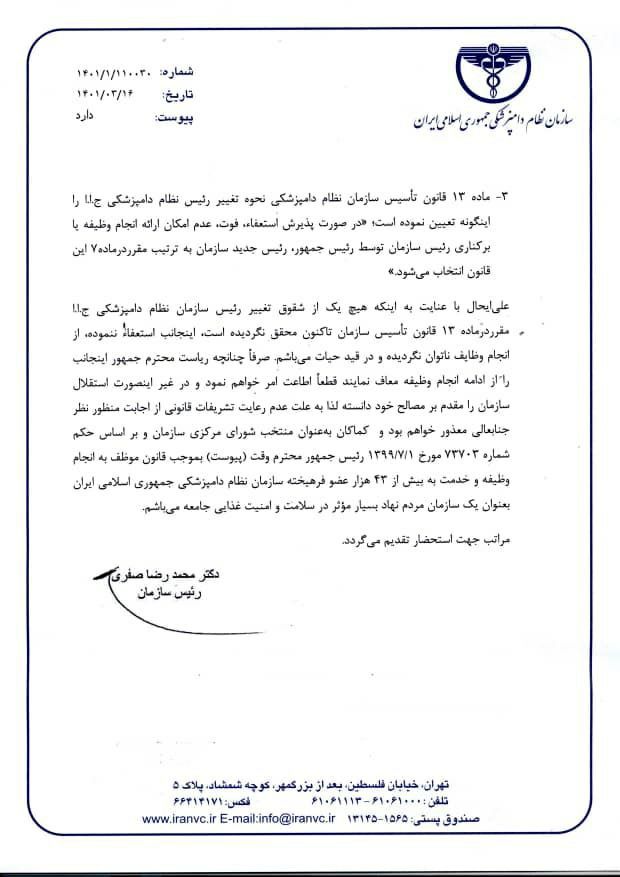 سازمان نظام دامپزشکی جمهوری اسلامی ایران
شماره: ۱۴۰۱/۱/۱۱۰۰۳۰
تاریخ: ۱۴۰۱/۰۳/۱۴
پیوست: دارد
۳- ماده ۱۳ قانون تأسیس سازمان نظام دامپزشکی نحوه تغییر رئیس نظام دامپزشکی ج.ا.ا را
اینگونه تعیین نموده است؛ «در صورت پذیرش استعفاء، فوت، عدم امکان ارائه انجام وظیفه یا
برکناری رئیس سازمان توسط رئیس جمهور، رئیس جدید سازمان به ترتیب مقرردرماده۷ این
قانون انتخاب می‌شود.»
علی‌ایحال با عنایت به اینکه هیچ یک از شقوق تغییر رئیس سازمان نظام دامپزشکی ج.ا.ا
مقرردرماده ۱۳ قانون تأسیس سازمان تاکنون محقق نگردیده است، اینجانب استعفاءً ننموده، از
انجام وظایف ناتوان نگردیده و در قید حیات می‌باشم. صرفاً چنانچه ریاست محترم جمهور اینجانب
را از ادامه انجام وظیفه معاف نمایند قطعاً اطاعت امر خواهم نمود و در غیر اینصورت استقلال
سازمان را مقدم بر مصالح خود دانسته لذا به علت عدم رعایت تشریفات قانونی از اجابت منظور نظر
جنابعالی معذور خواهم بود و کماکان به‌عنوان منتخب شورای مرکزی سازمان و بر اساس حکم
شماره ۷۳۷۰۳ مورخ ۱۳۹۹/۷/۱ رئیس جمهور محترم وقت (پیوست) بموجب قانون موظف به انجام
وظیفه و خدمت به بیش از ۴۳ هزار عضو فرهیخته سازمان نظام دامپزشکی جمهوری اسلامی ایران
بعنوان یک سازمان مردم نهاد بسیار مؤثر در سلامت و امنیت غذایی جامعه می‌باشم.
مراتب جهت استحضار تقدیم می‌گردد.
دکتر محمد رضا صفری
رئیس سازمان
تهران، خیابان فلسطین، بعد از بزرگمهر، کوچه شمشاد، پلاک ۵
تلفن: ۶۱۰۶۱۰۰۰ - ۶۱۰۶۱۱۱۳ فکس: ۶۶۴۱۴۱۷۱
صندوق پستی: ۱۵۶۵-۱۳۱۴۵ www.iranvc.ir E-mail:info@iranvc.ir